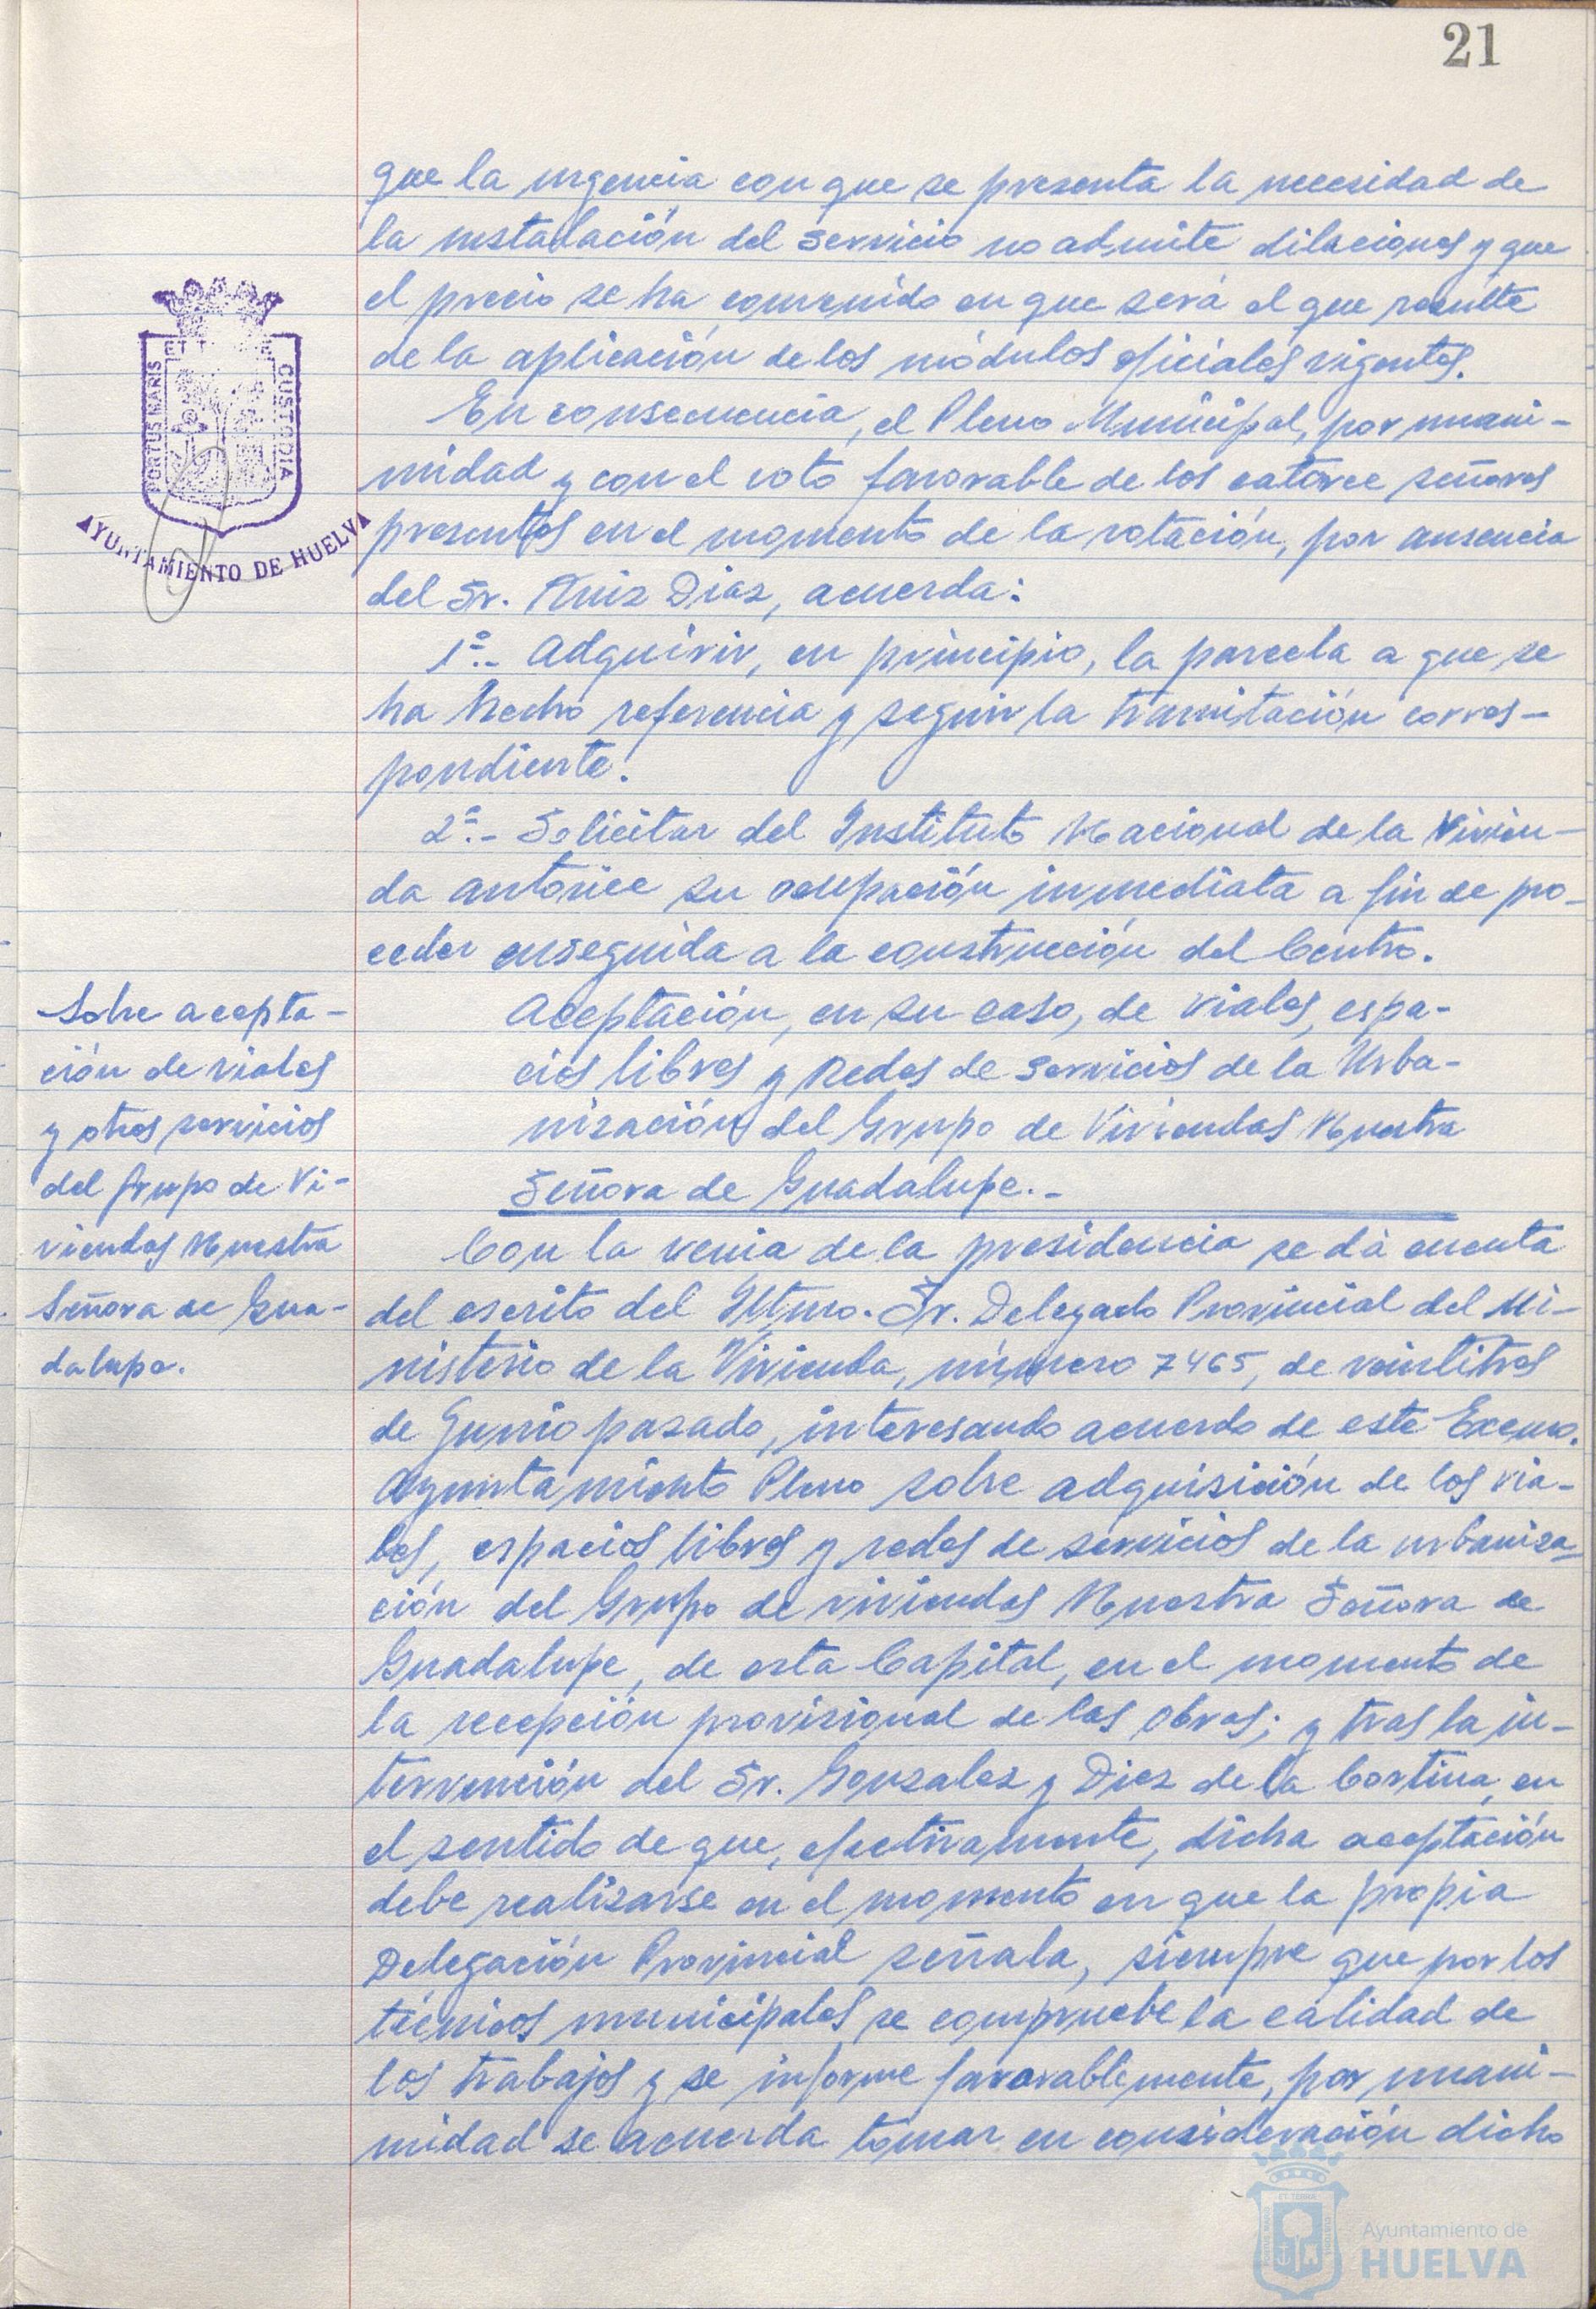 21
que la urgencia con que se presenta la necesidad de
la instalación del servicio no admite dilaciones y que
el precio se ha convenido en que será el que resulte
de la aplicación de los módulos oficiales vigentes.
En consecuencia, el Pleno Municipal, por unani-
midad y con el voto favorable de los catorce señores
presentes en el momento de la votación, por ausencia
del Sr. Ruiz Diaz, acuerda:
1º.- Adquirir, en principio, la parcela a que se
ha hecho referencia y seguir la tramitación corres-
pondiente.
2º.- Solicitar del Instituto Nacional de la Vivien-
da autorice su ocupación inmediata a fin de pro-
ceder enseguida a la construcción del Centro.
Aceptación, en su caso, de viales, espa-
cios libres y Redes de servicios de la Urba-
nización del Grupo de Viviendas Nuestra
Señora de Guadalupe.-
Con la venia de la presidencia se dá cuenta
del escrito del Iltmo. Sr. Delegado Provincial del Mi-
nisterio de la Vivienda, número 7465, de veintitres
de Junio pasado, interesando acuerdo de este Excmo.
Ayuntamiento Pleno sobre adquisición de los via-
les, espacios libres y redes de servicios de la urbaniza-
ción del Grupo de viviendas Nuestra Señora de
Guadalupe, de esta Capital, en el momento de
la recepción provisional de las obras; y tras la in-
tervención del Sr. Gonzalez y Diez de la Cortina, en
el sentido de que, efectivamente, dicha aceptación
debe realizarse en el momento en que la propia
Delegación Provincial señala, siempre que por los
técnicos municipales se compruebe la calidad de
los trabajos y se informe favorablemente, por unani-
midad se acuerda tomar en consideración dicho
Sobre acepta-
ción de viales
y otros servicios
del Grupo de Vi-
viendas Nuestra
Señora de Gua-
dalupe.
PORTUS MARIS
ET T
CUSTODIA
AYUNTAMIENTO DE HUELVA
Ayuntamiento de
HUELVA